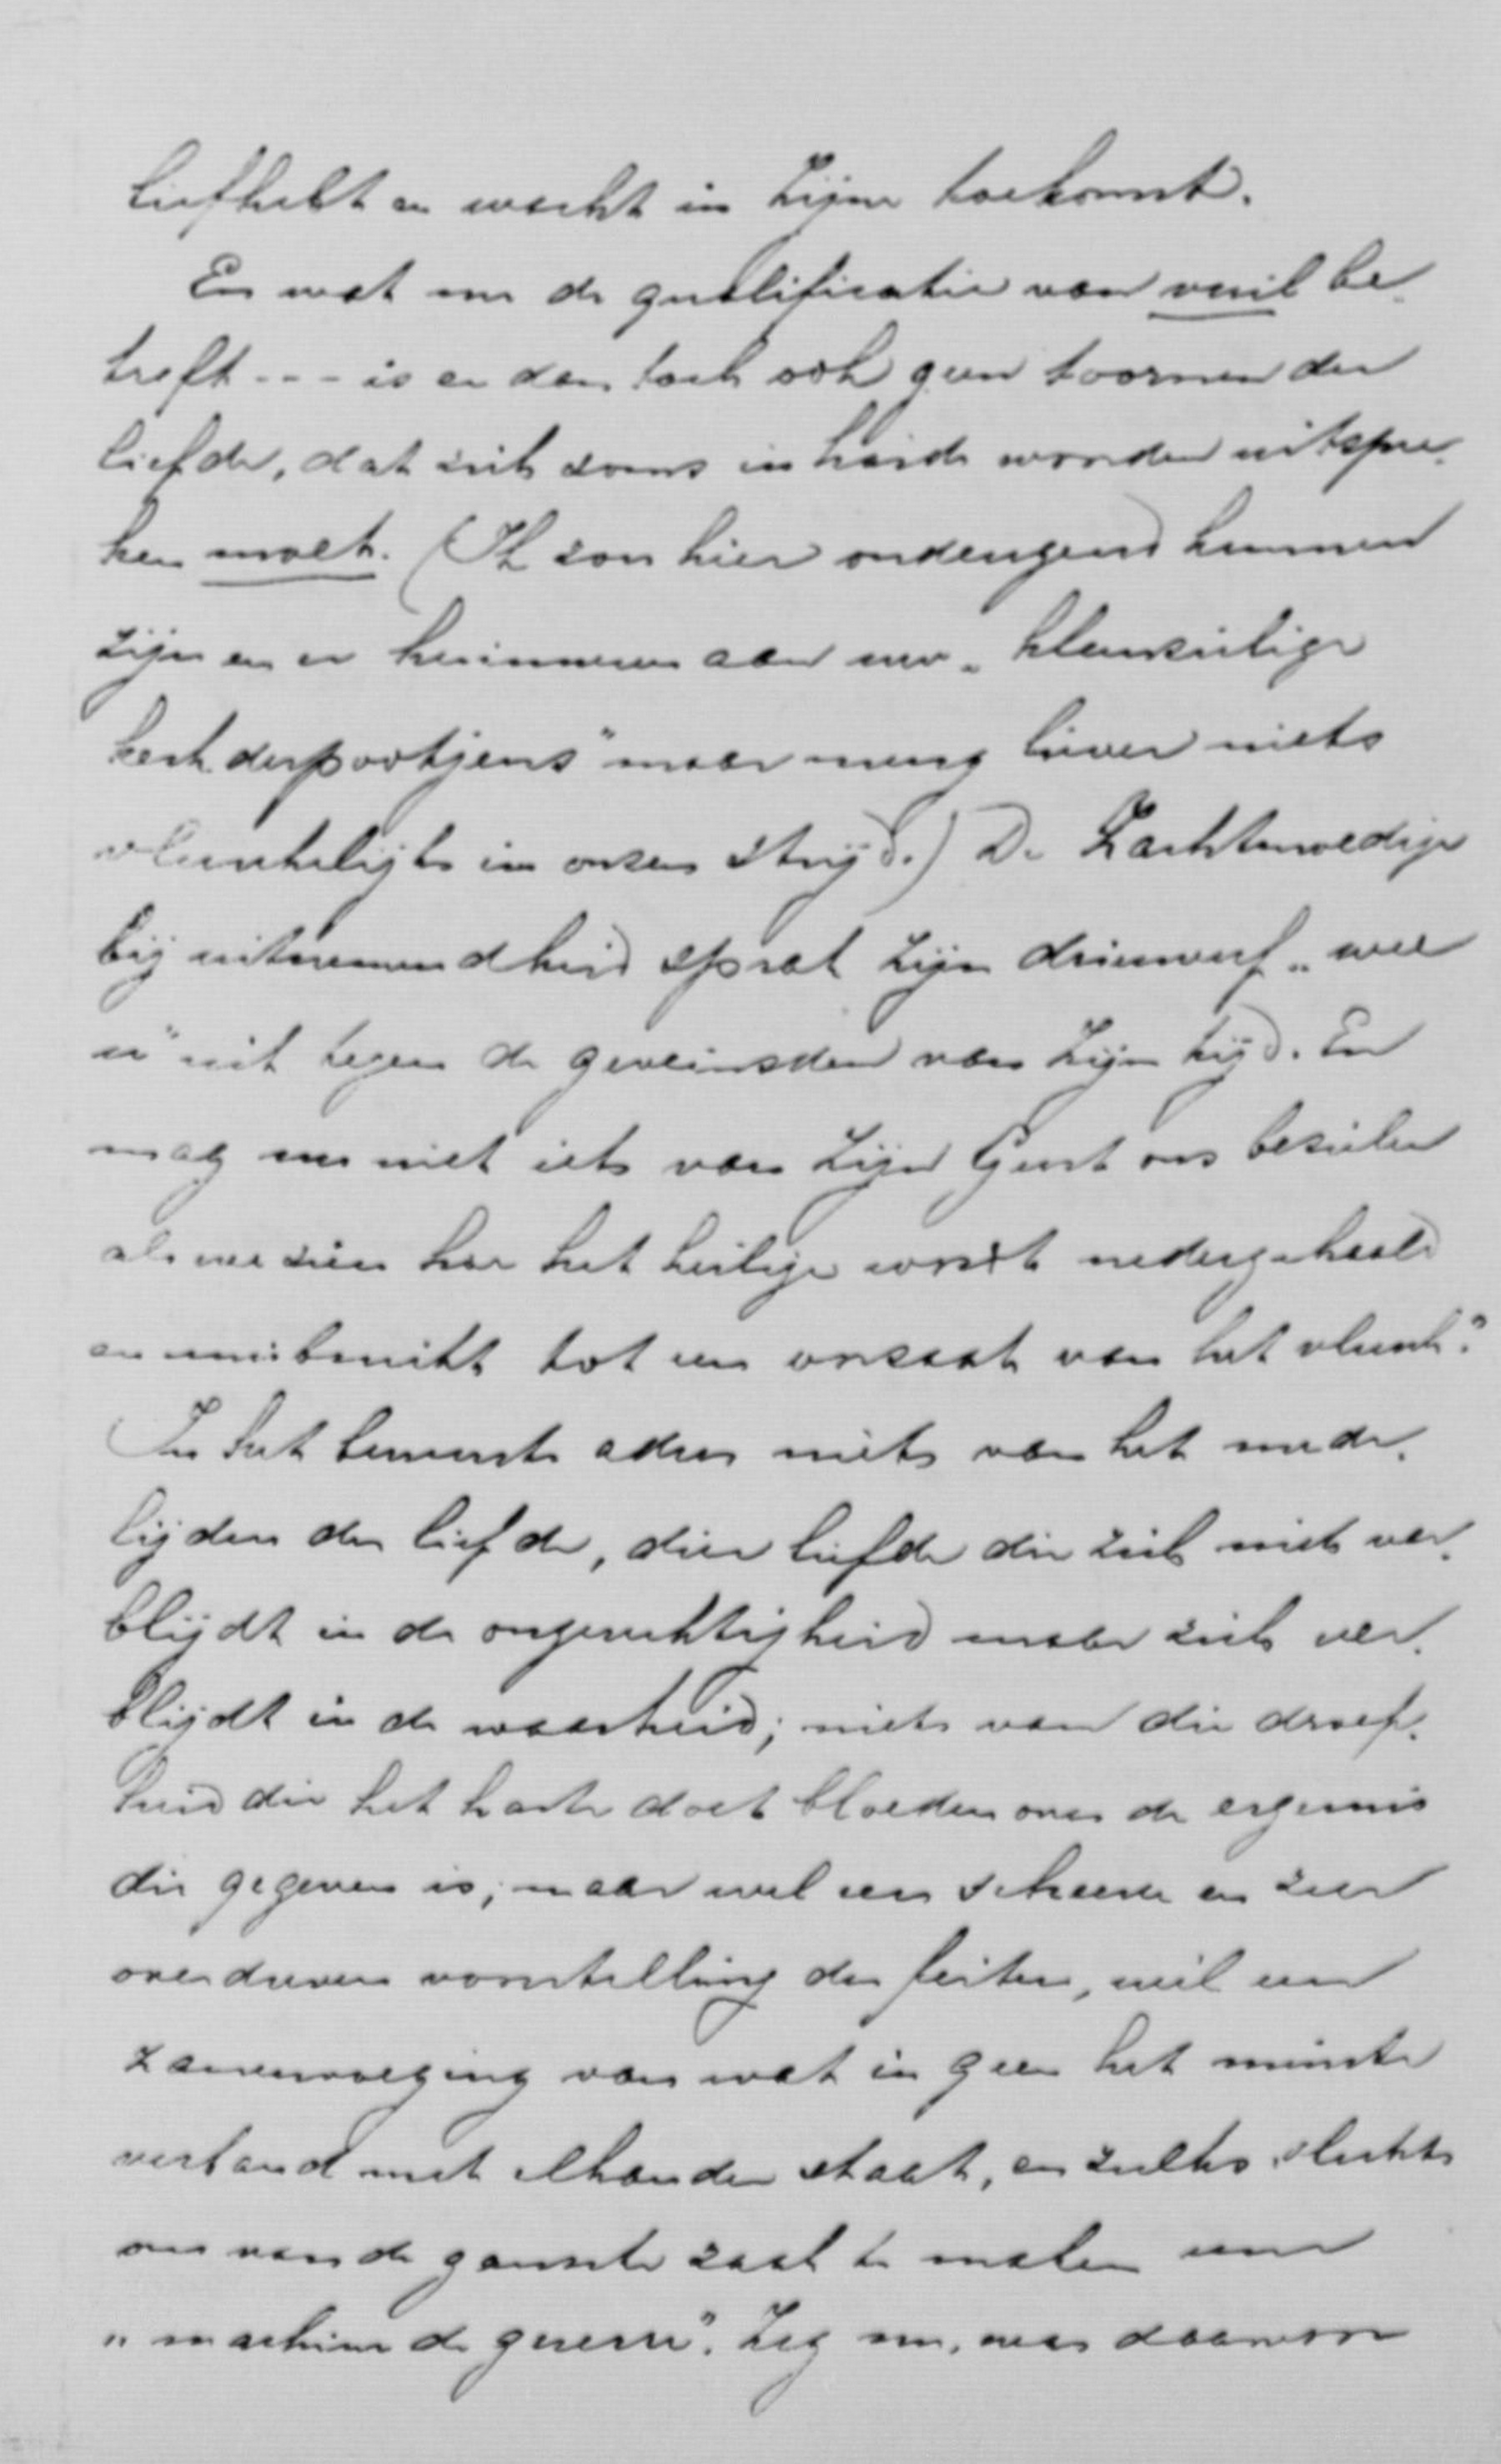 liefhebt en wacht in Zijne toekomst.
En wat nu de qualificatie van vuil be-
treft --- is er dan toch ook geen toornen der
liefde, dat zich soms in harde woorden uitspre-
ken moet. (Ik zou hier ondeugend kunnen
zijn en er herinneren aan uw "kleinzielige
kerkderpootjens" maar meng liever niets
vleeschelijks in onzen strijd.) De Zachtmoedige
bij uitnemendheid sprak Zijn driewerf "wee
u" uit tegen de geveinsden van Zijn tijd. En
mag nu niet iets van Zijn Geest ons bezielen
als we zien hoe het heilige wordt nedergehaald
en misbruikt tot een oorzaak van het vleesch?
In het bewuste adres niets van het mede-
lijden der liefde, dier liefde die zich niet ver-
blijdt in de ongerechtigheid maar zich ver-
blijdt in de waarheid; niets van die droef-
heid die het harte doet bloeden over de ergernis
die gegeven is; maar wel een scheeve en zeer
overdreven voorstelling der feiten, wel een
zamenvoeging van wat in geen het minste
verband met elkander staat, en zulks slechts
om van de gansche zaak te maken eene
"machine de guerre". Zeg nu, was daarvoor